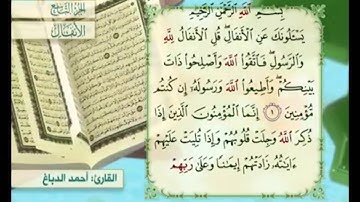 الجزء التاسع
الأنفال
بِسْمِ اللَّهِ الرَّحْمَٰنِ الرَّحِيمِ
يَسْـَٔلُونَكَ عَنِ الْأَنفَالِ ۖ قُلِ الْأَنفَالُ لِلَّهِ
وَالرَّسُولِ ۖ فَاتَّقُوا اللَّهَ وَأَصْلِحُوا ذَاتَ
بَيْنِكُمْ ۖ وَأَطِيعُوا اللَّهَ وَرَسُولَهُ إِن كُنتُم
مُّؤْمِنِينَ ١ إِنَّمَا الْمُؤْمِنُونَ الَّذِينَ إِذَا
ذُكِرَ اللَّهُ وَجِلَتْ قُلُوبُهُمْ وَإِذَا تُلِيَتْ عَلَيْهِمْ
ءَايَٰتُهُ زَادَتْهُمْ إِيمَٰنًا وَعَلَىٰ رَبِّهِمْ
القارئ: أحمد الدباغ